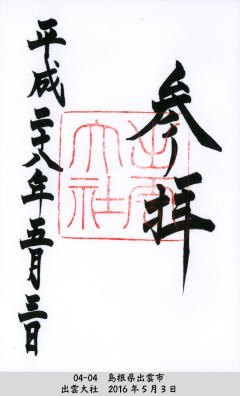 参拝
出雲大社
平成二十八年五月三日
04-04 島根県出雲市
出雲大社 2016年5月3日